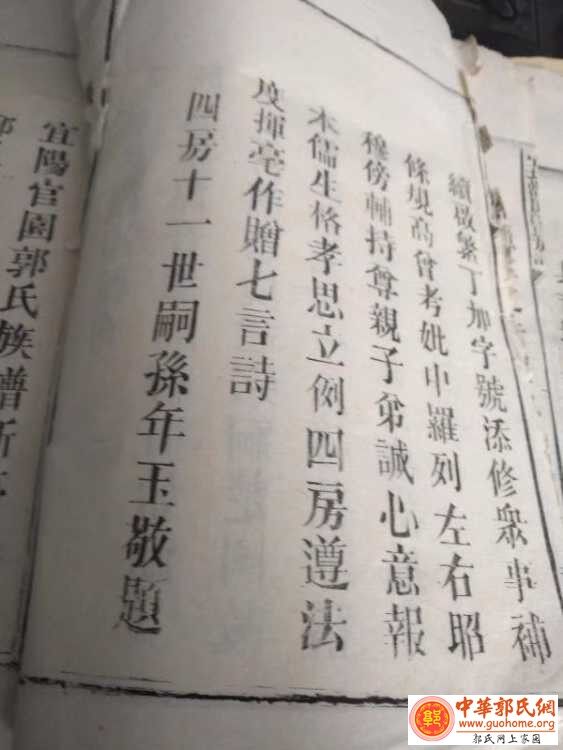 續啟繁丁加字號添修衆事補
條規高曾考妣中羅列左右昭
穆傍輔持尊親子弟誠心意報
本儒生格孝思立例四房遵法
度揮毫作贈七言詩
四房十一世嗣孫年玉敬題
宜陽官園郭氏族譜新
中華郭氏網
www.guohome.org
郭氏网上家园